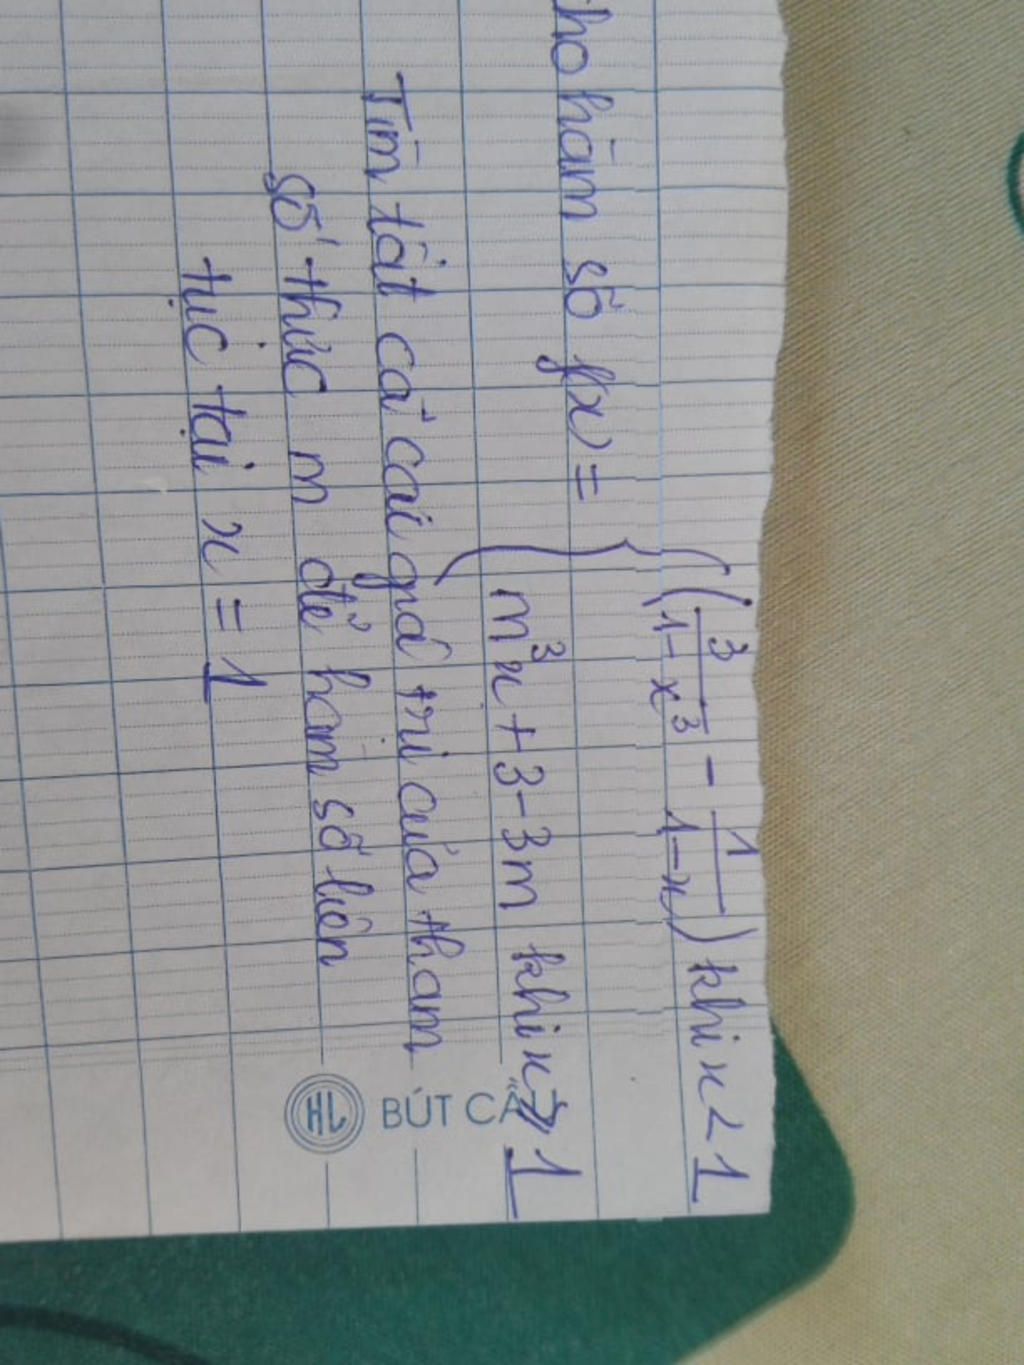 ho hàm số f(x) = { (3/(1-x³) - 1/(1-x)) khi x < 1
m³x + 3 - 3m khi x ≥ 1
Tìm tất cả cái giá trị của tham
số thực m để hàm số liên
tục tại x = 1
HL BÚT